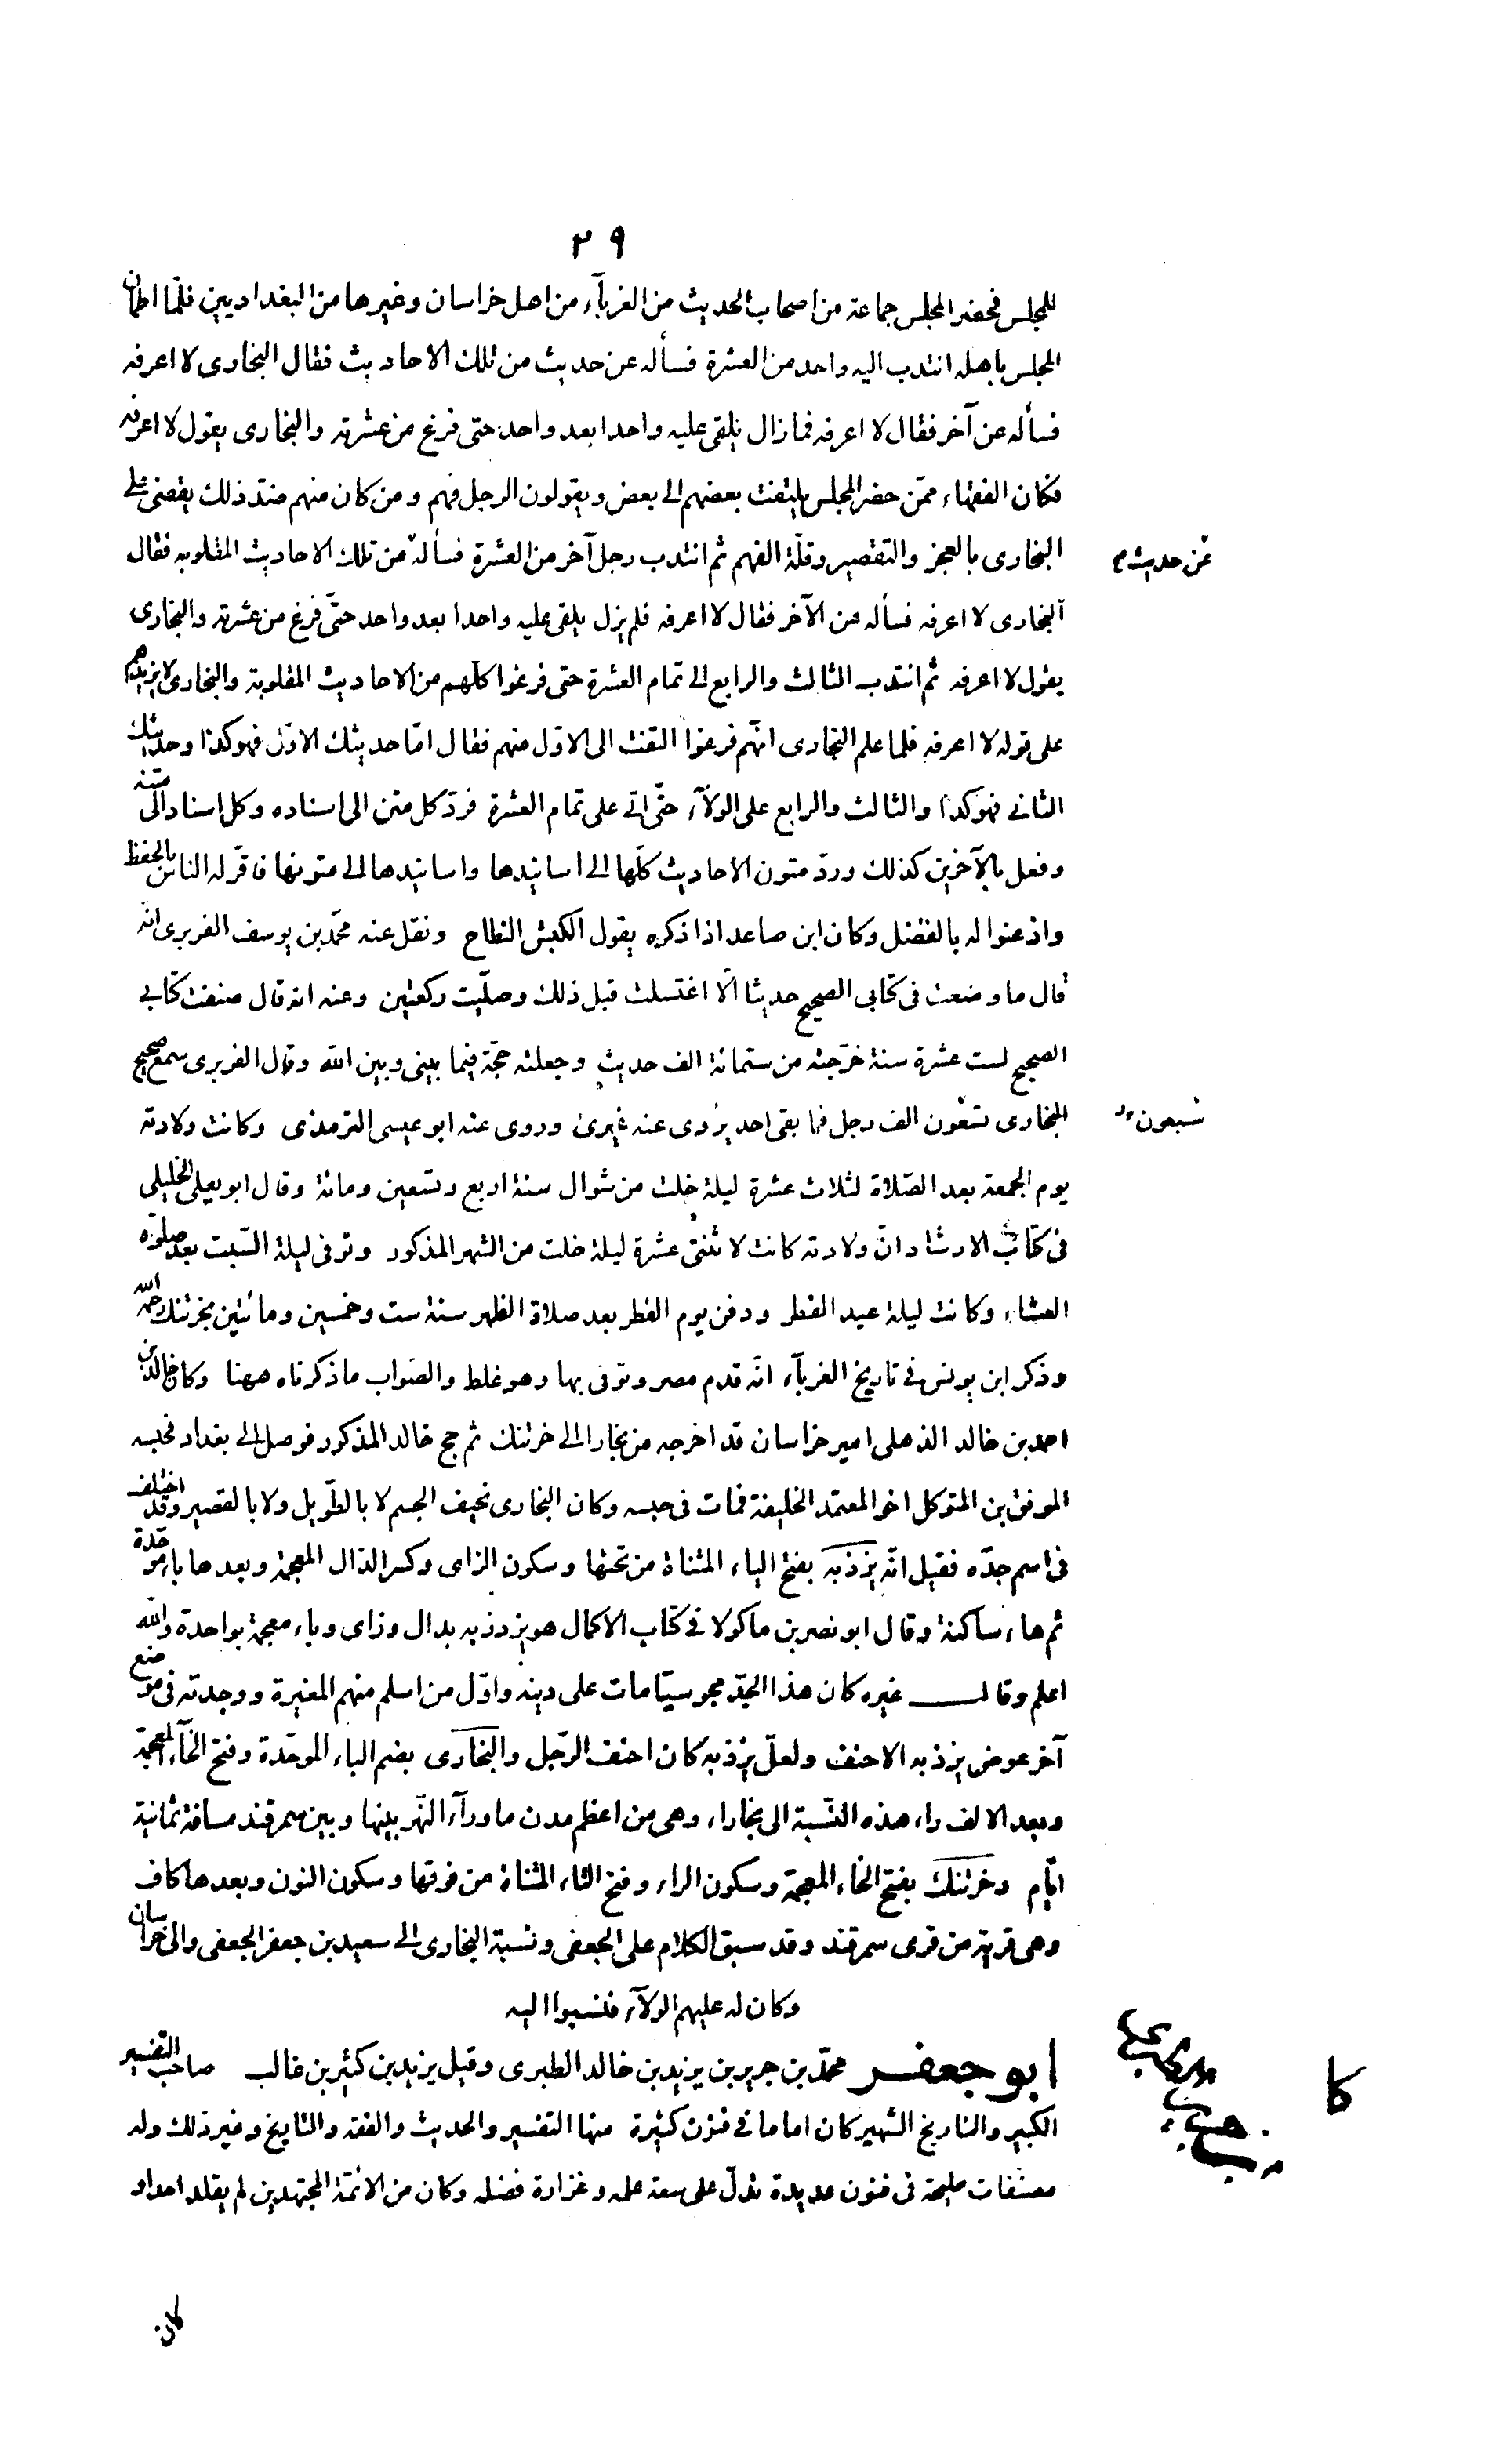 ٢٩
للمجلس فحضر المجلس جماعة من اصحاب الحديث من الغرباء من اهل خراسان وغيرها من البغداديين فلمّا اطمأن
المجلس باهله انتدب اليه واحد من العشرة فسأله عن حديث من تلك الاحاديث فقال البخارى لا اعرفه
فسأله عن آخر فقال لا اعرفه فما زال يلقى عليه واحدا بعد واحد حتى فرغ من عشرته والبخارى يقول لا اعرفه
فكان الفقهاء ممّن حضر المجلس يلتفت بعضهم الى بعض ويقولون الرجل فهم ومن كان منهم ضدّ ذلك يقضى على
البخارى بالعجز والتقصير وقلّة الفهم ثم انتدب رجل آخر من العشرة فسأله من تلك الاحاديث المقلوبه فقال
عن حديث
البخارى لا اعرفه فسأله عن الآخر فقال لا اعرفه فلم يزل يلقى عليه واحدا بعد واحد حتّى فرغ من عشرته والبخارى
يقول لا اعرفه ثم انتدب الثالث والرابع الى تمام العشرة حتى فرغوا كلهم من الاحاديث المقلوبة والبخارى لا يزيدهم
على قوله لا اعرفه فلما علم البخارى انّهم فرغوا التفت الى الاوّل منهم فقال امّا حديثك الاوّل فهو كذا وحديثك
الثانى فهو كذا والثالث والرابع على الولآء حتّى اتى على تمام العشرة فردّ كل متن الى اسناده وكل اسناد الى متنه
وفعل بالآخرين كذلك وردّ متون الاحاديث كلّها الى اسانيدها واسانيدها الى متونها فاقرّ له الناس بالحفظ
واذعنوا له بالفضل وكان ابن صاعد اذا ذكره يقول الكبش النطاح ونقل عنه محمّد بن يوسف الفربرى انّه
قال ما وضعت فى كتابى الصحيح حديثا الّا اغتسلت قبل ذلك وصلّيت ركعتين وعنه انه قال صنفت كتابى
الصحيح لست عشرة سنة خرّجته من ستمائة الف حديث وجعلته حجّة فيما بينى وبين الله وقال الفربرى سمع صحيح
البخارى تسعون الف رجل فما بقى احد يروى عنه غيرى وروى عنه ابو عيسى الترمذى وكانت ولادته
سبعون
يوم الجمعة بعد الصّلاة لثلاث عشرة ليلة خلت من شوال سنة اربع وتسعين ومائة وقال ابو يعلى الخليلى
فى كتاب الارشاد انّ ولادته كانت لاثنتى عشرة ليلة خلت من الشهر المذكور وتوفى ليلة السّبت بعد صلوة
العشاء وكانت ليلة عيد الفطر ودفن يوم الفطر بعد صلاة الظهر سنة ست وخمسين ومائتين بخرتنك رحمه الله
وذكر ابن يونس فى تاريخ الغربآء انّه قدم مصر وتوفى بها وهو غلط والصّواب ما ذكرناه ههنا وكان خالد بن
احمد بن خالد الذهلى امير خراسان قد اخرجه من بخارا الى خرتنك ثم حج خالد المذكور فوصل الى بغداد فحبسه
الموفق بن المتوكل اخو المعتمد الخليفة فمات فى حبسه وكان البخارى نحيف الجسم لا بالطّويل ولا بالقصير وقد اختلف
فى اسم جدّه فقيل انّه يزذبه بفتح الياء المثناة من تحتها وسكون الزاى وكسر الذال المعجمة وبعدها باء موحّدة
ثم هاء ساكنة وقال ابو نصر بن ماكولا فى كتاب الاكمال هو يزدزبه بدال وزاى وباء معجمة بواحدة والله
اعلم وقال غيره كان هذا الجدّ مجوسيّا مات على دينه واوّل من اسلم منهم المغيرة ووجدته فى موضع
آخر عوض يزذبه الاحنف ولعلّ يزذبه كان احنف الرّجل والبخارى بضم الباء الموحّدة وفتح الخآء المعجمة
وبعد الالف راء هذه النّسبة الى بخارا، وهى من اعظم مدن ماورآء النّهر بينها وبين سمرقند مسافة ثمانية
ايّام وخرتنك بفتح الخاء المعجمة وسكون الراء وفتح التاء المثناة من فوقها وسكون النون وبعدها كاف
وهى قرية من قرى سمرقند وقد سبق الكلام على الجعفى ونسبة البخارى الى سعيد بن جعفر الجعفى والى خراسان
وكان له عليهم الولآء فنسبوا اليه
ابو جعفر محمّد بن جرير بن يزيد بن خالد الطبرى وقيل يزيد بن كثير بن غالب صاحب التفسير
الكبير والتاريخ الشهير كان اماما فى فنون كثيرة منها التفسير والحديث والفقه والتاريخ وغير ذلك وله
مصنّفات مليحة فى فنون عديدة تدلّ على سعة علمه وغزارة فضله وكان من الائمّة المجتهدين لم يقلد احدا و
كان